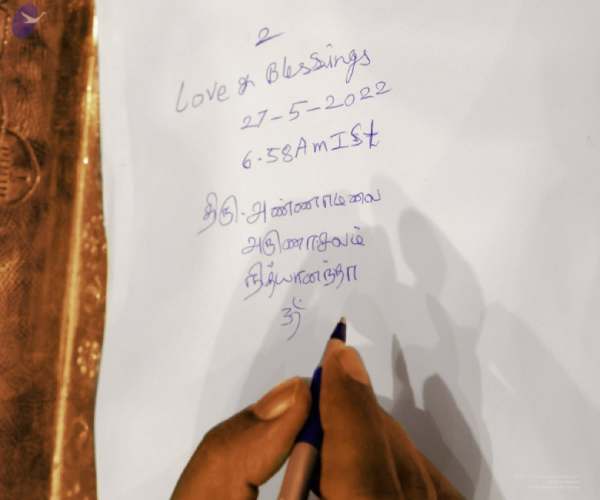 உ
Love & Blessings
27-5-2022
6.58 Am ISt
திரு. அண்ணாமலை
அருணாசலம்
நித்யானந்தா